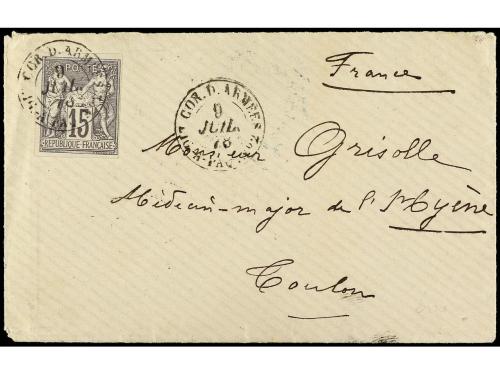 COR. D. ARMEES
9
JUIL.
78
POSTES
15
REPUBLIQUE FRANÇAISE
COR. D. ARMEES
9
JUIL.
78
France
Monsieur Grisolle
Médecin-major de l'Hyène
Toulon